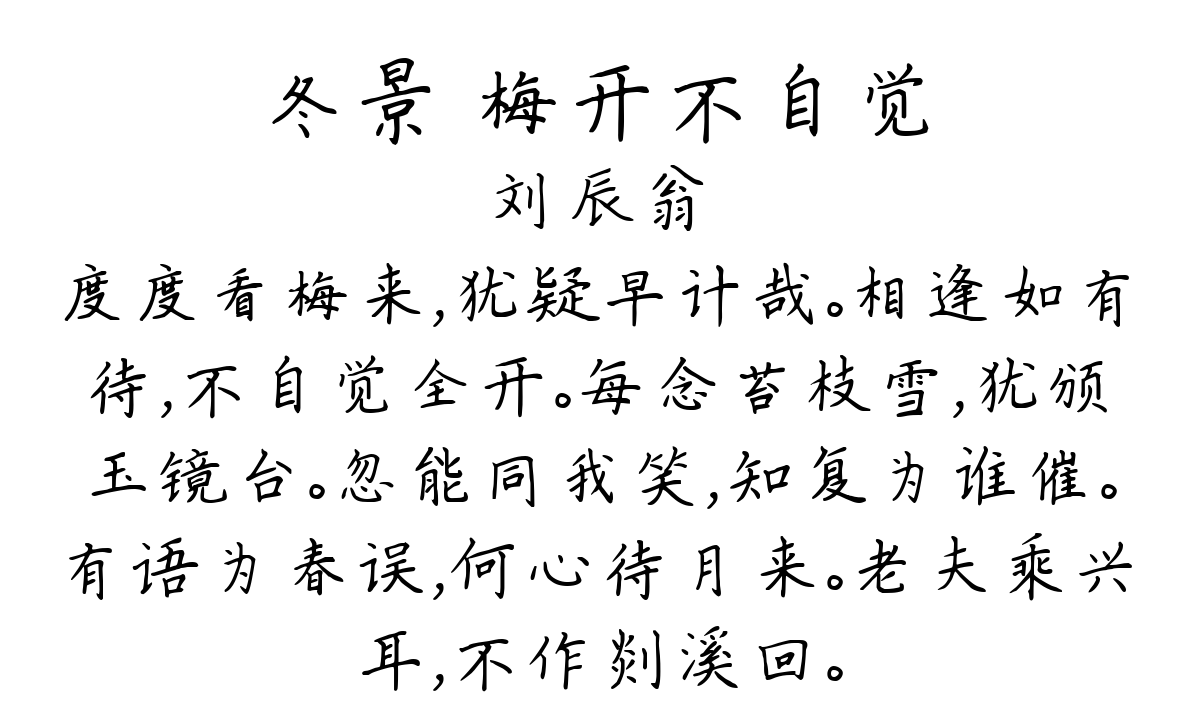 冬景 梅开不自觉
刘辰翁
度度看梅来,犹疑早计哉。相逢如有
待,不自觉全开。每念苔枝雪,犹颁
玉镜台。忽能同我笑,知复为谁催。
有语为春误,何心待月来。老夫乘兴
耳,不作剡溪回。